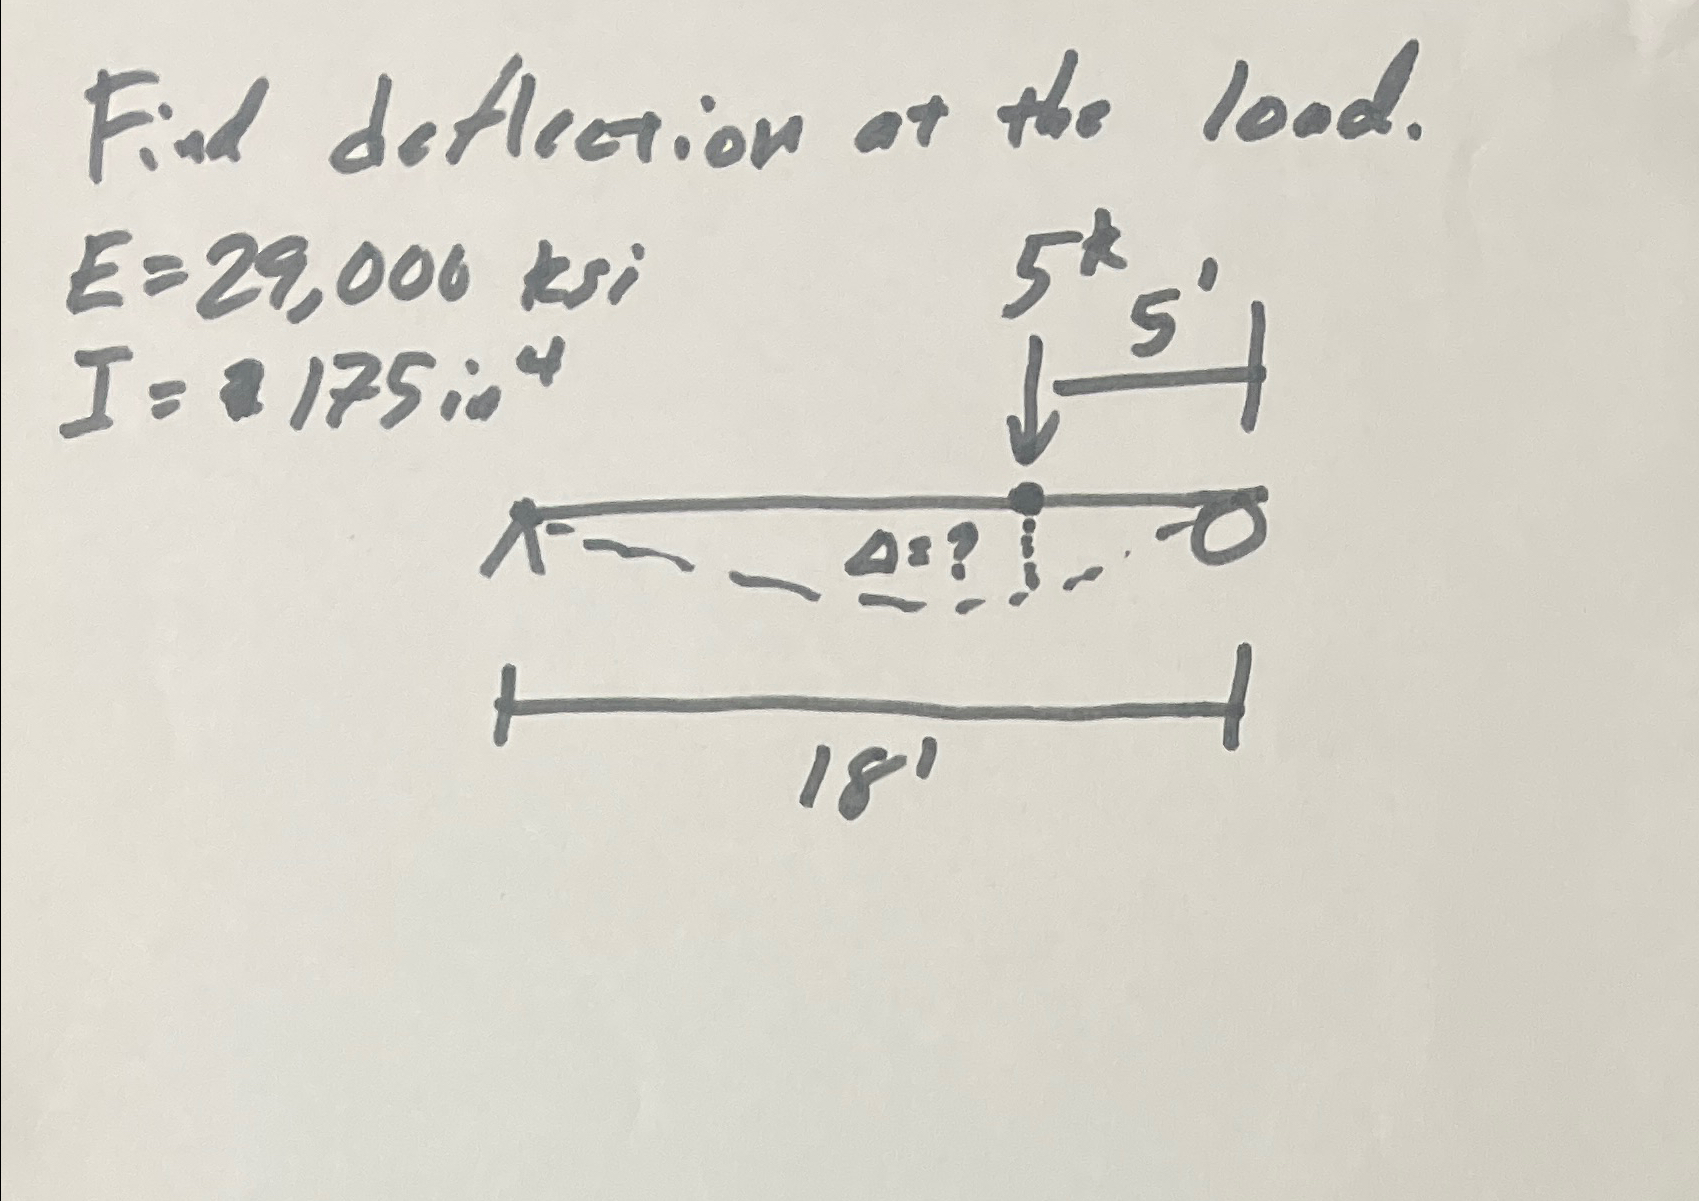 Find deflection at the load.
E=29,000 ksi
I= 175in⁴
5ᵏ
5'
Δ=?
18'